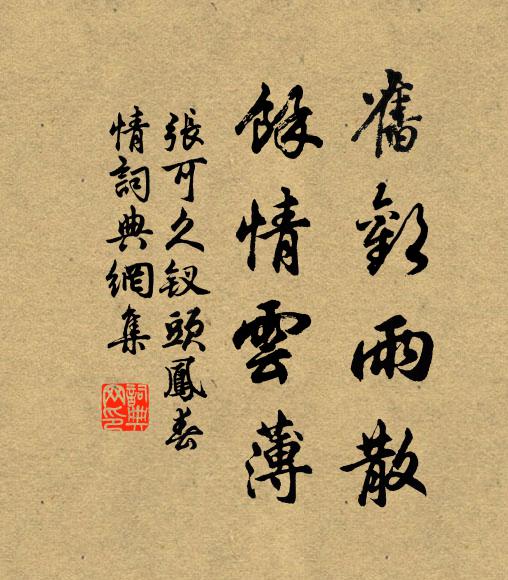 舊歡雨散
餘情雲薄
張可久釵頭鳳春
情詞典網集
詞典
网印